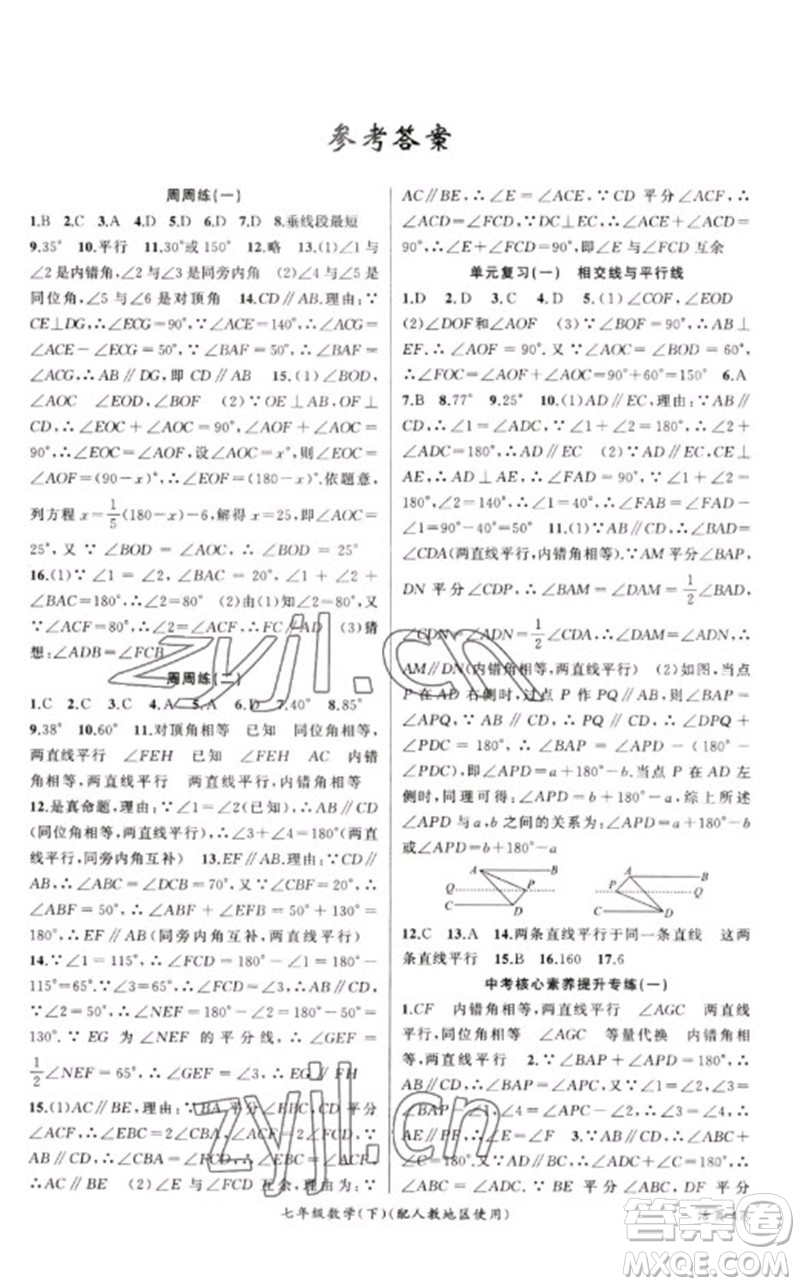 参考答案
周周练(一)
1.B 2.C 3.A 4.D 5.D 6.D 7.D 8.垂线段最短
9.35° 10.平行 11.30°或150° 12.略 13.(1)∠1与
∠2是内错角,∠2与∠3是同旁内角 (2)∠4与∠5是
同位角,∠6与∠7是对顶角 14.CD∥AB.理由:∵
CE⊥DG,∴∠ECG=90°,∵∠ACE=140°,∴∠ACG=
∠ACE-∠ECG=50°,∵∠BAF=50°,∴∠BAF=
∠ACG,∴AB∥DG,即CD∥AB 15.(1)∠BOD,
∠AOC ∠EOD,∠BOF (2)∵OE⊥AB,OF⊥
CD,∴∠EOF+∠AOF=90°,∠AOC+∠AOF=
90°,∴∠EOF=∠AOC,设∠AOC=x°,则∠EOF=x°,
∠AOF=(90-x)°,∴∠EOF=(180-x)°.依题意,
列方程x=1/5(180-x)-6,解得x=25,即∠AOC=
25°,又∵∠BOD=∠AOC,∴∠BOD=25°
16.(1)∵∠1=∠2,∠BAC=20°,∠1+∠2+
∠BAC=180°,∴∠2=80° (2)由(1)知∠2=80°,又
∵∠ACF=80°,∴∠2=∠ACF,∴FC∥AD (3)猜
想:∠ADB=∠FCB
周周练(二)
1.C 2.C 3.C 4.A 5.A 6.D 7.40° 8.85°
9.38° 10.60° 11.对顶角相等 已知 同位角相等,
两直线平行 ∠FEH 已知 ∠FEH AC 内错
角相等,两直线平行 两直线平行,内错角相等
12.是真命题,理由:∵∠1=∠2(已知),∴AB∥CD
(同位角相等,两直线平行),∴∠3+∠4=180°(两直
线平行,同旁内角互补) 13.EF∥AB.理由:∵
CD∥AB,∴∠ABC=∠DCB=70°,又∵∠CBF=20°,
∴∠ABF=50°,∴∠ABF+∠EFB=50°+130°=
180°,∴EF∥AB(同旁内角互补,两直线平行)
14.∵∠1=∠FCD,∠1=115°,∴∠FCD=
115°=65°,∵∠2=50°,∴∠NEF=180°-∠2=180°-50°=
130°.∵EG为∠NEF的平分线,∴∠GEF=
1/2∠NEF=65°,∴∠GEF=∠FCD,∴EG∥FH
15.(1)AC∥BE,理由:∵BA平分∠EBC,CD平分
∠ACF,∴∠EBC=2∠CBA,∠ACF=2∠FCD,∵
AB∥CD,∴∠CBA=∠FCD,∴∠EBC=∠ACF,
∴AC∥BE (2)∠E与∠FCD互余.理由如下:∵
AC∥BE,∴∠E=∠ACE,∵CD平分∠ACF,∴
∠ACD=∠FCD,∵DC⊥EC,∴∠ACE+∠ACD=
90°,∴∠E+∠FCD=90°,即∠E与∠FCD互余
单元复习(一) 相交线与平行线
1.D 2.D 3.C 4.D 5.(1)∠COF,∠EOD
(2)∠DOF和∠AOF (3)∵∠BOF=90°,∴AB⊥
EF.∴∠AOF=90°.又∵∠AOC=∠BOD=60°,∴
∠FOC=∠AOF+∠AOC=90°+60°=150° 6.A
7.B 8.77° 9.25° 10.(1)AD∥EC,理由:∵AB∥
CD,∴∠2=∠ADC,∵∠1+∠2=180°,∴∠1+
∠ADC=180°,∴AD∥EC (2)∵AD∥EC,CE⊥
AE,∴AD⊥AE,∴∠FAD=90°,∵∠1+∠2=
180°,∴∠2=140°,∴∠1=40°,∴∠FAB=∠FAD-
∠1=90°-40°=50° 11.(1)∵AB∥CD,∴∠BAD=
∠CDA(两直线平行,内错角相等).∵AM平分∠BAP,
DN平分∠CDP,∴∠BAM=∠DAM=1/2∠BAD,
∠CDN=∠ADN=1/2∠CDA,∴∠DAM=∠ADN,∴
AM∥DN(内错角相等,两直线平行) (2)如图,当点
P在AD右侧时,过点P作PQ∥AB,则∠BAP=
∠APQ,∵AB∥CD,∴PQ∥CD,∴∠DPQ+
∠PDC=180°,∴∠BAP=∠APD-(180°-∠PDC),
即∠APD=a+180°-b.当点P在AD
左侧时,同理可得:∠APD=b+180°-a,综上所述
∠APD与a,b之间的关系为:∠APD=a+180°-b
或∠APD=b+180°-a
A B Q P C D
A B P Q C D
12.C 13.A 14.两条直线平行于同一条直线 这两
条直线平行 15.B 16.160 17.6
中考核心素养提升专练(一)
1.CF 内错角相等,两直线平行 ∠AGC 两直线
平行,同位角相等 ∠AGC 等量代换 内错角相
等,两直线平行 2.∵∠BAP+∠APD=180°,∴
AB∥CD,∴∠BAP=∠APC,又∵∠1=∠2,∴
AE∥PF,∴∠E=∠F 3.∵AB∥CD,∴∠ABC=
七年级数学(下)(配人教地区使用)
zyjl.cn
zyjl.cn
答案圈
MXQE.COM